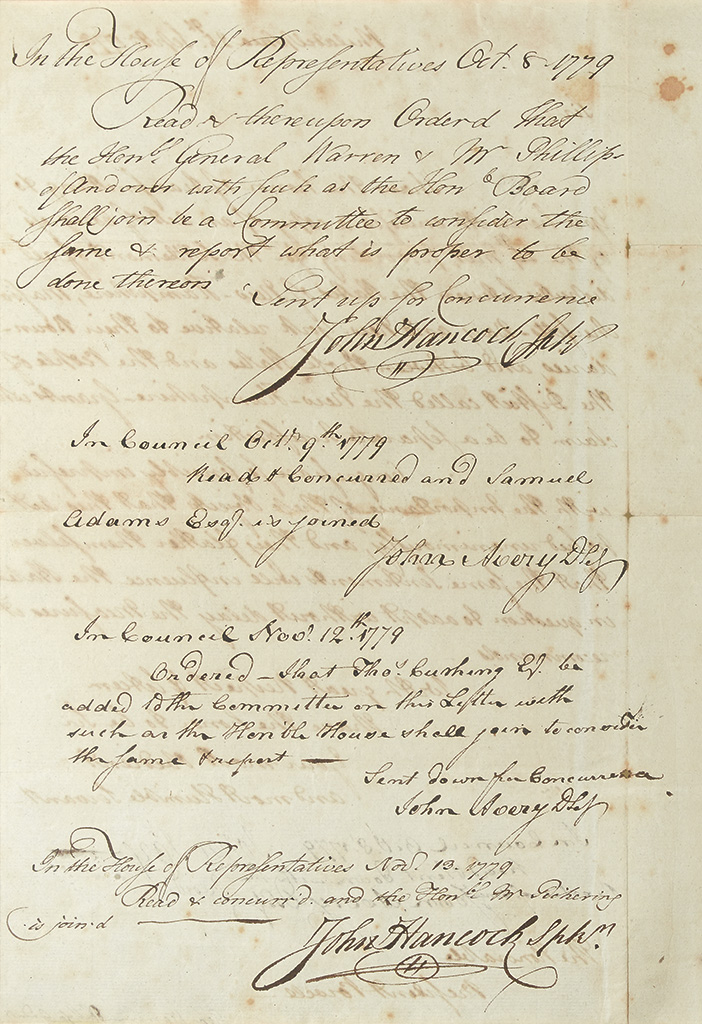 In the House of Representatives Oct. 8 1779
Read & thereupon Orderd that
the Honbl. General Warren & Mr Phillips
of Andover with such as the Honb Board
shall join be a Committee to consider the
same & report what is proper to be
done thereon
Sent up for Concurrence
John Hancock Spkr
In Council Octr. 9th. 1779
Read & Concurred and Samuel
Adams Esqr. is joined
John Avery D Sy
In Council Novr. 12th. 1779
Ordered – that Thos. Cushing Esq. be
added to the Committee on this Letter with
such as the Honble House shall join to consider
the same & report —
Sent down for Concurrence
John Avery D Sy
In the House of Representatives Nov. 13. 1779
Read & concurr'd. and the Honbl. Mr Pickering
is join'd
John Hancock Spkr.